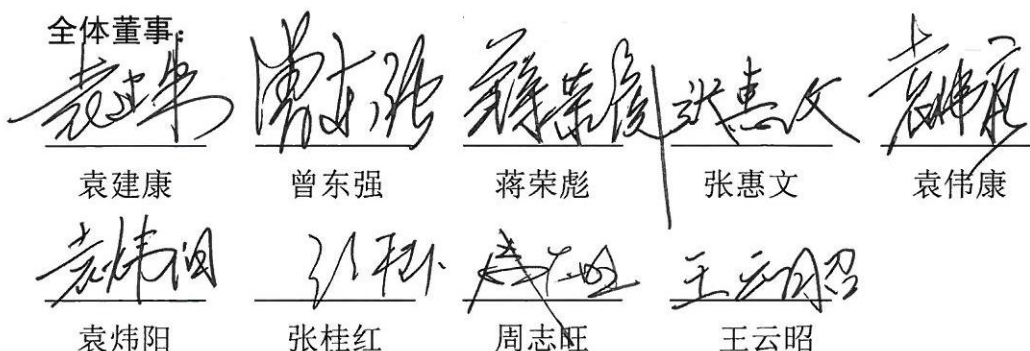 全体董事：
袁建康 曾东强 蒋荣彪 张惠文 袁伟康
袁炜阳 张桂红 周志旺 王云昭